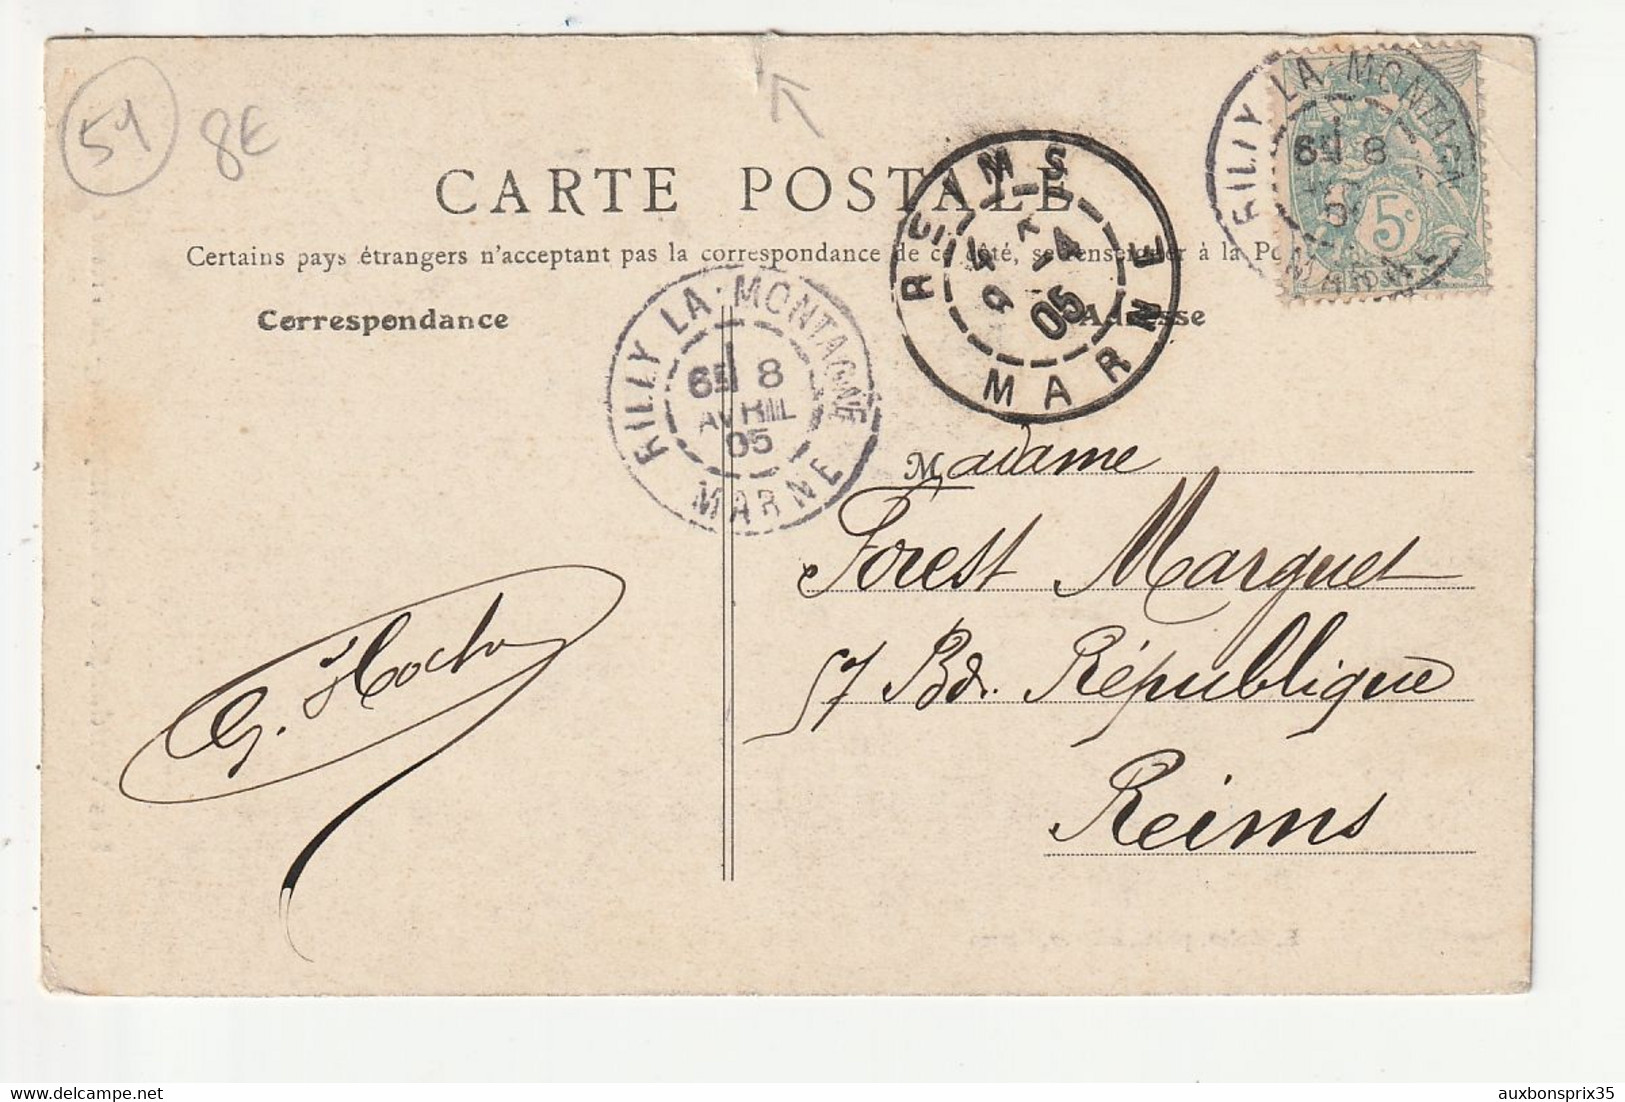 51
8E
CARTE POSTALE
Certains pays étrangers n'acceptant pas la correspondance de ce côté, se renseigner à la Po
Correspondance
Adresse
RILLY LA MONTAGNE
8
AVRIL
05
MARNE
REIMS
05
MARNE
RILLY LA MONTAGNE
8
MARNE
5c
Madame
Forest Marguet
57 Bd. République
Reims
G. Hoche
auxbonsprix35